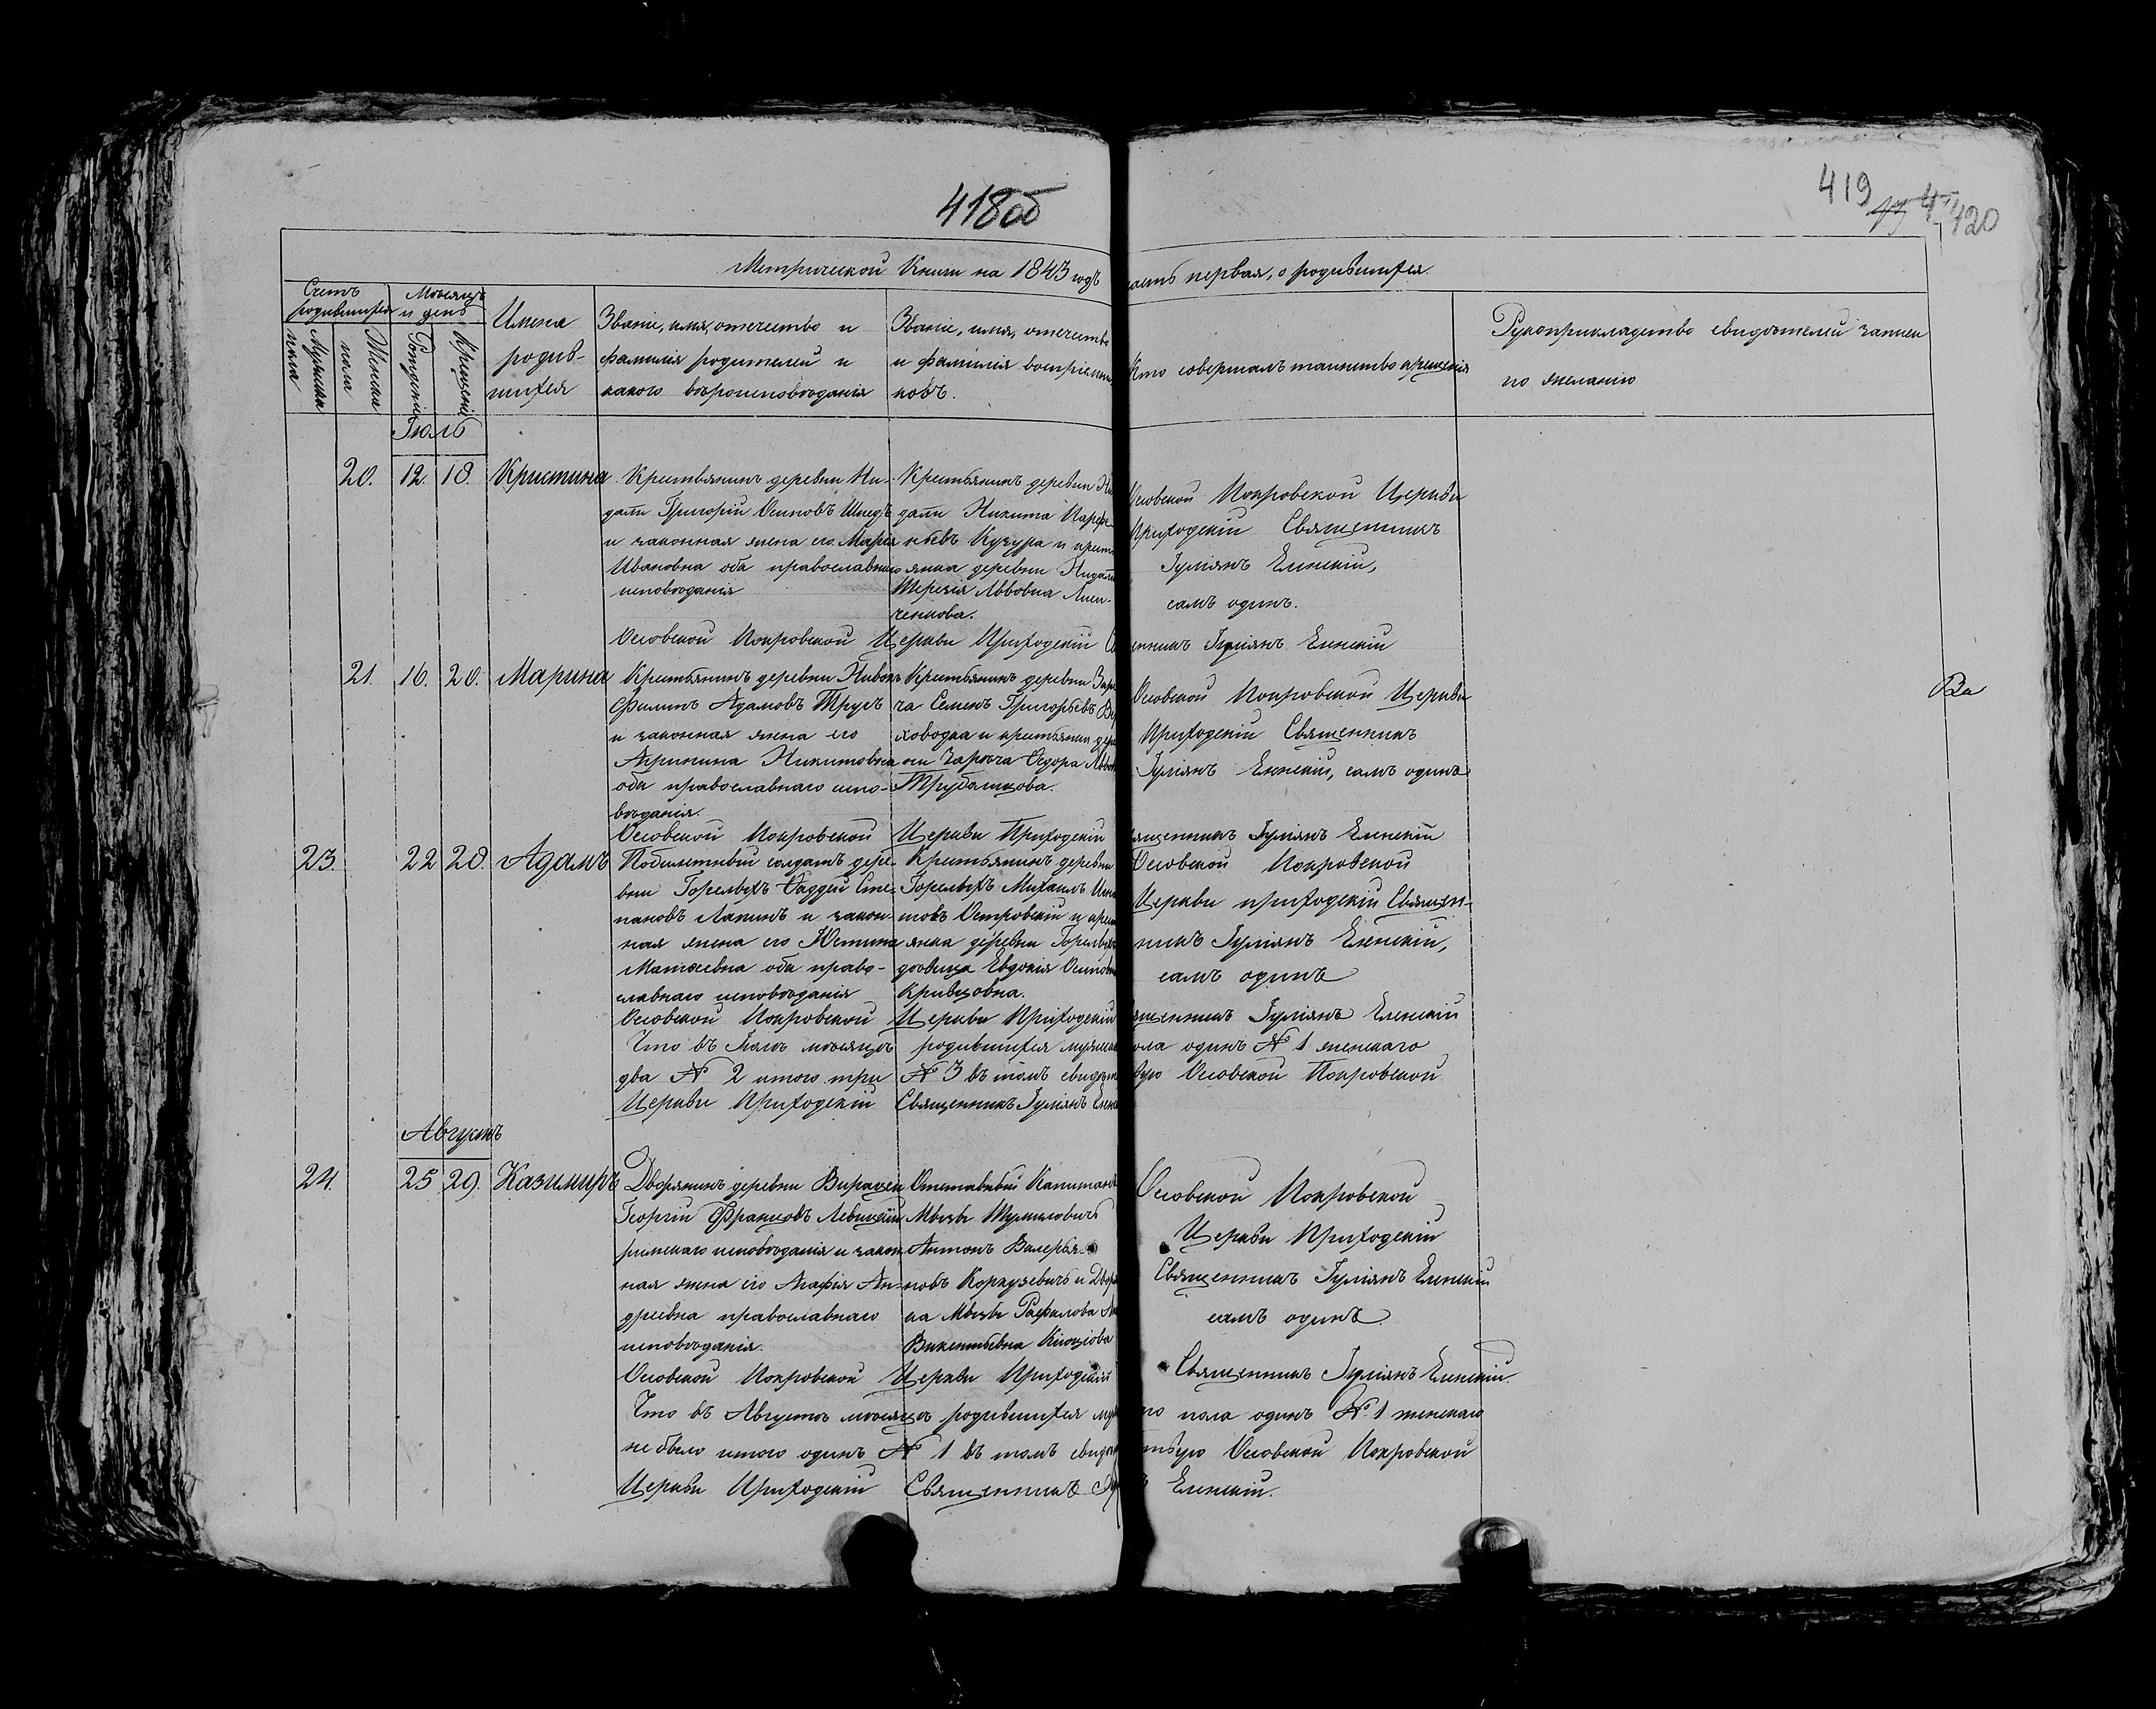 418об
419
420
Метрической Книги на 1843 годъ
часть первая, о родившихся.
Счетъ родившихся
Мѣсяцъ и день
Мужска пола
Женска пола
Рожденія
Крещенія
Имена родив-
шихся
Званіе, имя, отчество и
фамилія родителей и
какого вѣроисповѣданія
Званіе, имя, отчество
и фамилія воспріемни
ковъ.
Кто совершалъ таинство крещенія
Рукоприкладство свидѣтелей записи
по желанію
Іюль
20. 12. 18. Кристина
Крестьянинъ деревни Ни-
дали Григорій Осиповъ Шнедъ
и законная жена его Марія
Ивановна оба православнаго
исповѣданія
Крестьянинъ деревни Ни
дали Никита Парфе
ньевъ Кузура и крест
янка деревни Нидали
Терезія Аввовна
ченкова.
Осовской Покровской Церкви
Приходскій Священникъ
Іуліянъ Еленскій,
самъ одинъ.
Осовской Покровской Церкви Приходскій Священникъ Іуліянъ Еленскій
21. 16. 20. Марина
Крестьянинъ деревни Нивокъ
Филипъ Адамовъ Трусъ
и законная жена его
Акринина Никитовна
оба православнаго испо-
вѣданія.
Крестьянинъ деревни Заре
ча Семенъ Григорьевъ Ве
ховодка и крестьянки дере
вни Зарѣча Ѳедора Аввов
Трубашкова.
Осовской Покровской Церкви
Приходскій Священникъ
Іуліянъ Еленскій, самъ одинъ
Осовской Покровской Церкви Приходскій Священникъ Іуліянъ Еленскій
23. 22 28. Адамъ
Побилетный солдатъ дере-
вни Горелыхъ Ѳаддей Сте-
пановъ Лапинъ и закон-
ная жена его Юстина
Матѳеевна оба право-
славнаго исповѣданія
Крестьянинъ деревни
Горелыхъ Михаилъ Игна
товъ Островскій и крест
янка деревни Горелых
довица Евдокія Осипов
Кривцовна.
Осовской Покровской
Церкви приходскій Священ-
никъ Іуліянъ Еленскій,
самъ одинъ
Осовской Покровской Церкви Приходскій Священникъ Іуліянъ Еленскій
Что въ Іюлѣ мѣсяцѣ родившихся мужска пола одинъ № 1 женскаго
два № 2 итого три № 3 въ томъ свидѣтельствую Осовской Покровской
Церкви Приходскій Священникъ Іуліянъ Еленскій
Августъ
24. 25 29. Казимиръ
Дворянинъ деревни Вирацеи
Георгій Францовъ Левицкій
римскаго исповѣданія и закон-
ная жена его Агафія Ан-
дреевна православнаго
исповѣданія.
Отставный Капитанъ
Мызы Шумиловичъ
Антонъ Валерья-
новъ Коркузевичъ и Дворян
ка Мызы Рафалова
Викентьевна
Осовской Покровской
Церкви Приходскій
Священникъ Іуліянъ Еленскій
самъ одинъ
Осовской Покровской Церкви Приходскій Священникъ Іуліянъ Еленскій.
Что въ Августѣ мѣсяцѣ родившихся мужскаго пола одинъ № 1 женскаго
не было итого одинъ № 1 въ томъ свидѣтельствую Осовской Покровской
Церкви Приходскій Священникъ Іуліянъ Еленскій.